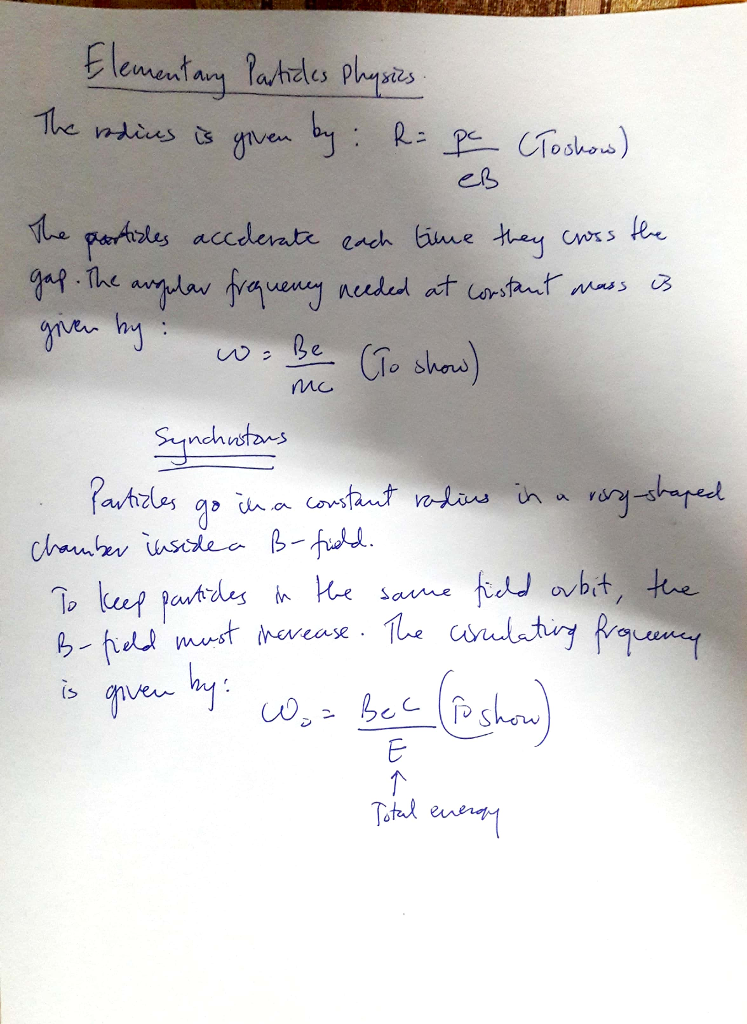 Elementary Particles Physics.
The radius is given by : R = pc / eB (To show)
The particles accelerate each time they cross the
gap. The angular frequency needed at constant mass is
given by :
ω = Be / mc (To show)
Synchrotons
Particles go in a constant radius in a ring-shaped
chamber inside a B-field.
To keep particles in the same field orbit, the
B-field must increase. The circulating frequency
is given by:
ω₀ = Bec / E (To show)
↑
Total energy